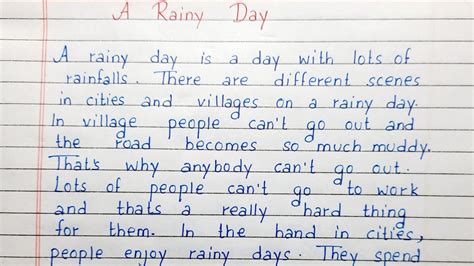 A Rainy Day
A rainy day is a day with lots of
rainfalls. There are different scenes
in cities and villages on a rainy day.
In village people can't go out and
the road becomes so much muddy.
That's why anybody can't go out.
Lots of people can't go to work
and thats a really hard thing
for them. In the hand in cities,
people enjoy rainy days. They spend